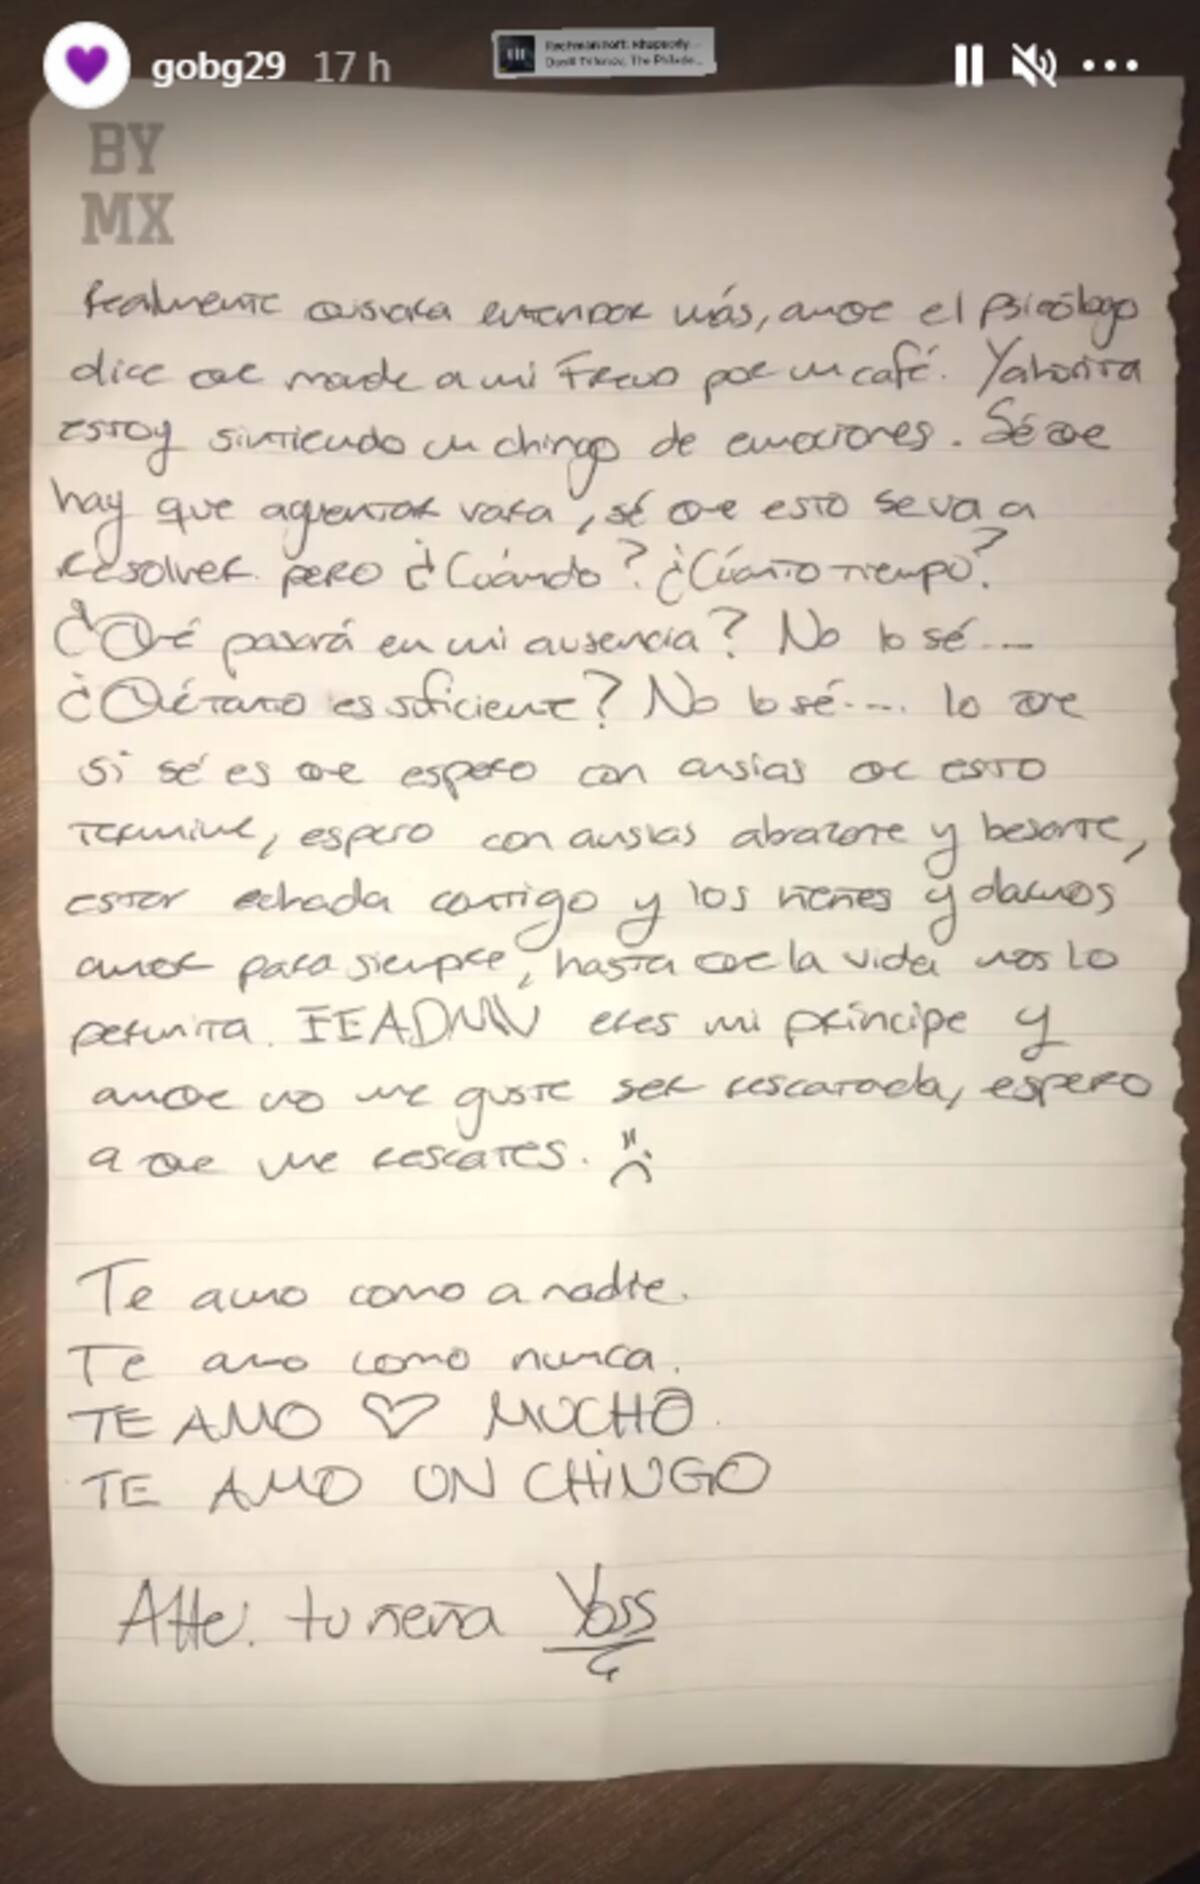 gobg29 17 h
BY
MX
Realmente quisiera entender más, aunque el psicólogo
dice que mande a mi Freud por un café. Yahorita
estoy sintiendo un chingo de emociones. Sé que
hay que aguantar vara, sé que esto se va a
resolver pero ¿Cuándo? ¿Cuánto tiempo?
¿Qué pasará en mi ausencia? No lo sé....
¿Qué tanto es suficiente? No lo sé.... lo que
si sé es que espero con ansias que esto
termine, espero con ansias abrazarte y besarte,
estar echada contigo y los ñeñes y darnos
amor para siempre, hasta que la vida nos lo
permita. EEADMV eres mi príncipe y
aunque no me guste ser rescatada, espero
a que me rescates.
Te amo como a nadie.
Te amo como nunca.
TE AMO ♡ MUCHO
TE AMO UN CHINGO
Atte. tu ñeña Yoss